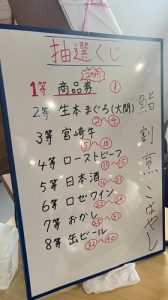 抽選くじ
1等 商品券 ①
2等 生本まぐろ(大間)
②~④
3等 宮崎牛
⑤~⑩
4等 ローストビーフ
⑪~⑮
5等 日本酒
6等 ロゼワイン
7等 おかし
8等 缶ビール
鮨 割烹 こばやし